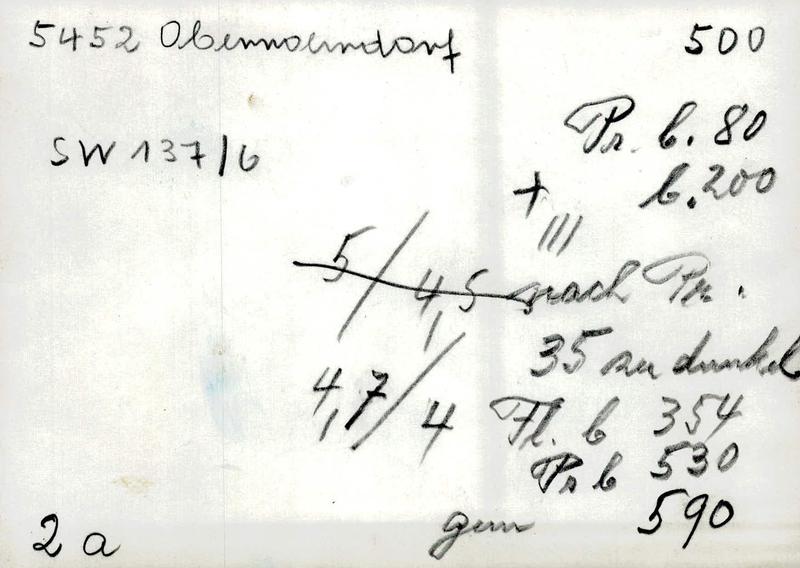 5452 Obernoerndorf 500
Pr. b. 80
SW 137/6
+ b. 200
III
5/4,5 nach Pr.
35 zu dunkel
4,7/4 Fl. b 354
Pr b 530
2 a 590